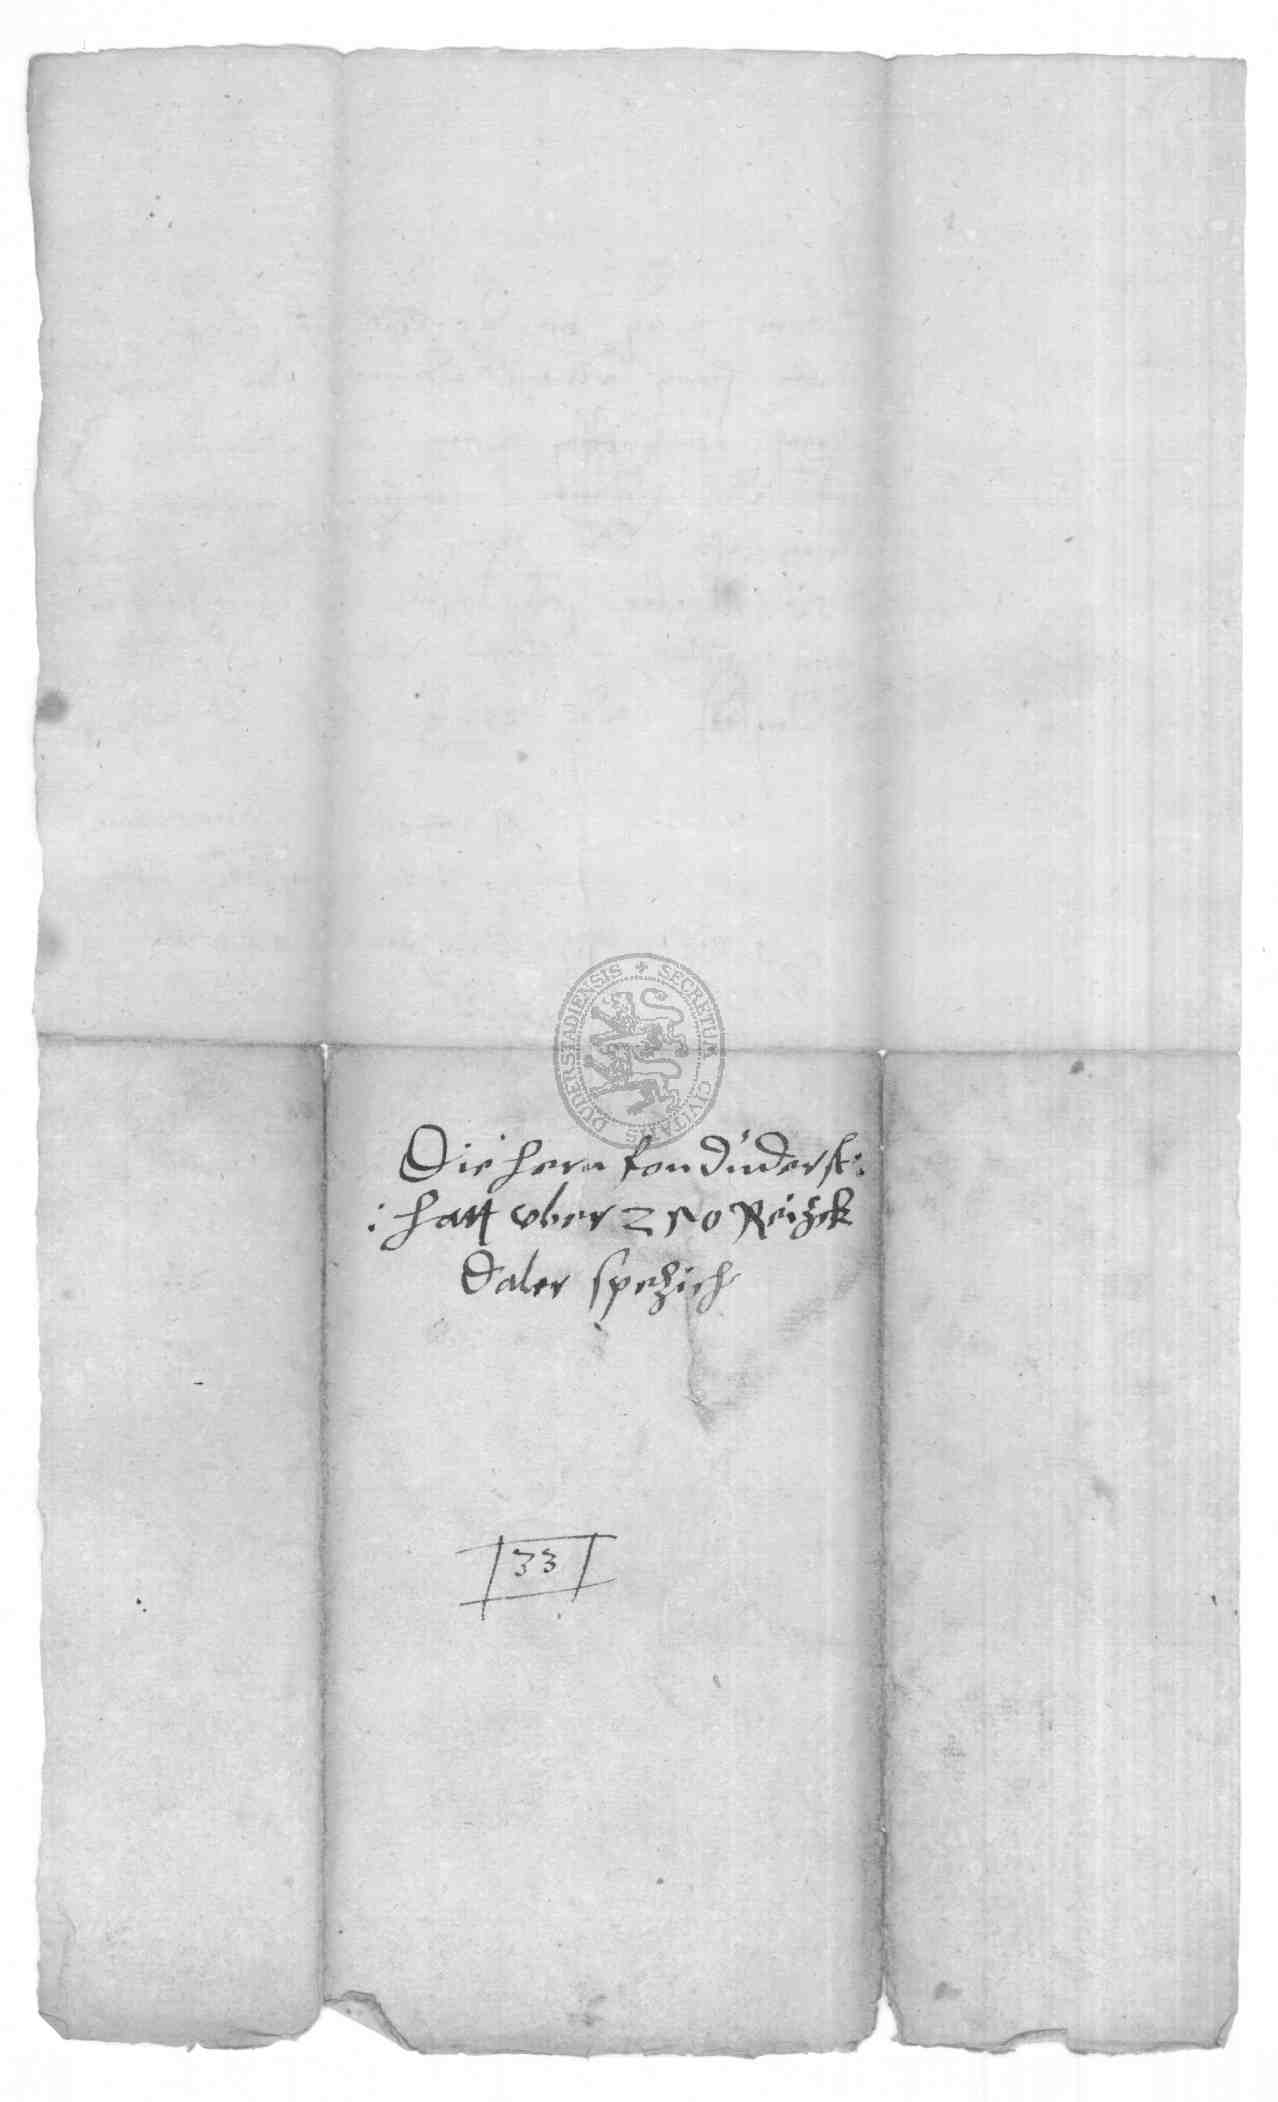 SECRETUM CIVITATIS DUDERSTADIENSIS
Die hern fon düderst:
: hatt vber 250 Reizck
Daler spezich
33